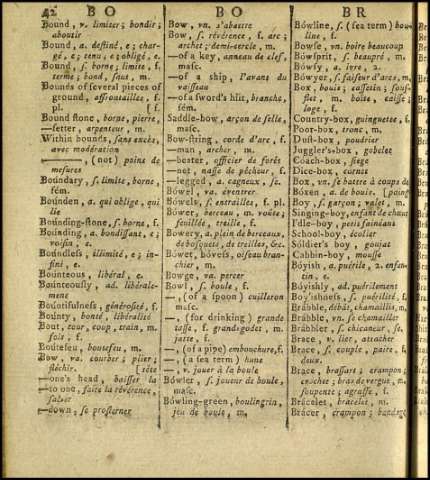 42 B O
Bound, v. limiter; bondir;
aboutir
Bound, a. destiné, e; char-
gé, e; tenu, e; obligé, e.
Bound, s. borne, limite, f.
terme; bond, saut, m.
Bounds of several pieces of
ground, affrontailles, f.
pl. [f.
Bound stone, borne, pierre,
—setter, arpenteur, m.
Within bounds, sans excès,
avec modération
——, (not) point de
mesures
Boúndary, s. limite, borne,
fém.
Boúnden, a. qui oblige, qui
lie
Boúnding-stone, s. borne, f.
Boúnding, a. bondissant, e;
voisin, e.
Boúndless, illimité, e; in-
fini, e.
Boúnteous, libéral, e.
Boúnteously, ad. libérale-
ment
Boúntifulness, générosité, f.
Boúnty, bonté, libéralité
Bout, tour, coup, train, m.
fois, f.
Boutefeu, boutefeu, m.
Bow, va. courber; plier;
fléchir. [tête
—one's head, baisser la
—to one, faire la révérence,
saluer
—down, se prosterner
B O
Bow, vn. s'abattre
Bow, s. révérence, f. arc;
archet; demi-cercle, m.
—of a key, anneau de clef,
masc.
—of a ship, l'avant du
vaisseau
—of a sword's hilt, branche,
fém.
Saddle-bow, arçon de selle,
masc.
Bow-string, corde d'arc, f.
—man, archer, m.
—bearer, officier de forêt
—net, nasse de pêcheur, f.
—legged, a. cagneux, se.
Bówel, va. éventrer
Bówels, s. entrailles, f. pl.
Bówer, berceau, m. voûte;
feuillée, treille, f.
Bówery, a. plein de berceaux,
de bosquets, de treilles, &c.
Bówet, bówess, oiseau bran-
chier, m.
Bowge, va. percer
Bowl, s. boule, f.
—, (of a spoon) cuilleron
masc.
—, (for drinking) grande
tasse, f. grand-godet, m.
jatte, f.
—, (of a pipe) embouchure, f.
—, (a sea term) hune
—, v. jouer à la boule
Bówler, s. joueur de boule,
masc.
Bówling-green, boulingrin,
jeu de boule, m.
B R
Bówline, s. (sea term) bou-
line, f.
Bowse, vn. boire beaucoup
Bówsprit, s. beaupré, m.
Bówsy, a. ivre, 2.
Bówyer, s. faiseur d'arcs, m.
Box, bouis; cassetin; souf-
flet, m. boîte, caisse;
loge, f.
Country-box, guinguette, f.
Poor-box, tronc, m.
Dust-box, poudrier
Juggler's-box, gobelet
Coach-box, siege
Dice-box, cornet
Box, vn. se battre à coups de
Bóxen, a. de bouis. [poing
Boy, s. garçon; valet, m.
Singing-boy, enfant de chœur
I'dle-boy, petit fainéant
School-boy, écolier
Sóldier's boy, goujat
Cabbin-boy, mousse
Bóyish, a. puérile, 2. enfan-
tin, e.
Bóyishly, ad. puérilement
Boy'ishness, s. puérilité, f.
Brábble, débat, chamaillis, m.
Brábble, vn. se chamailler
Brábbler, s. chicaneur, se.
Brace, v. lier, attacher
Brace, s. couple, paire, f.
deux.
Brace, brassart; crampon;
crochet; bras de vergue, m.
soupente; agrasse, f.
Brácelet, bracelet, m.
Brácer, crampon; bandage